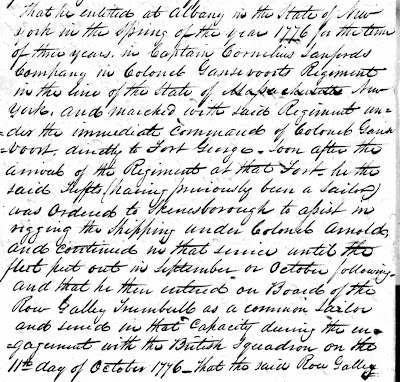 That he enlisted at Albany in the State of New
York in the Spring of the year 1776 for the term
of three years, in Captain Cornelius Janfords
Company in Colonel Gansevoorts Regiment
in the line of the State of Massachusetts New
York, and marched with said Regiment un=
=der the immediate command of Colonel Ganse
=voort, directly to Fort George - Soon after the
arrival of the Regiment at that Fort, he the
said Tifft, (having previously been a Sailor)
was Ordered to Skenesborough to assist in
rigging the Shipping under Colonel Arnold,
and continued in that service until the
fleet put out in September or October following-
and that he then entered on Board of the
Row Galley Trumbull as a common sailor
and served in that Capacity during the en=
=gagement with the British Squadron on the
11th day of October 1776 - That the said Row Galley